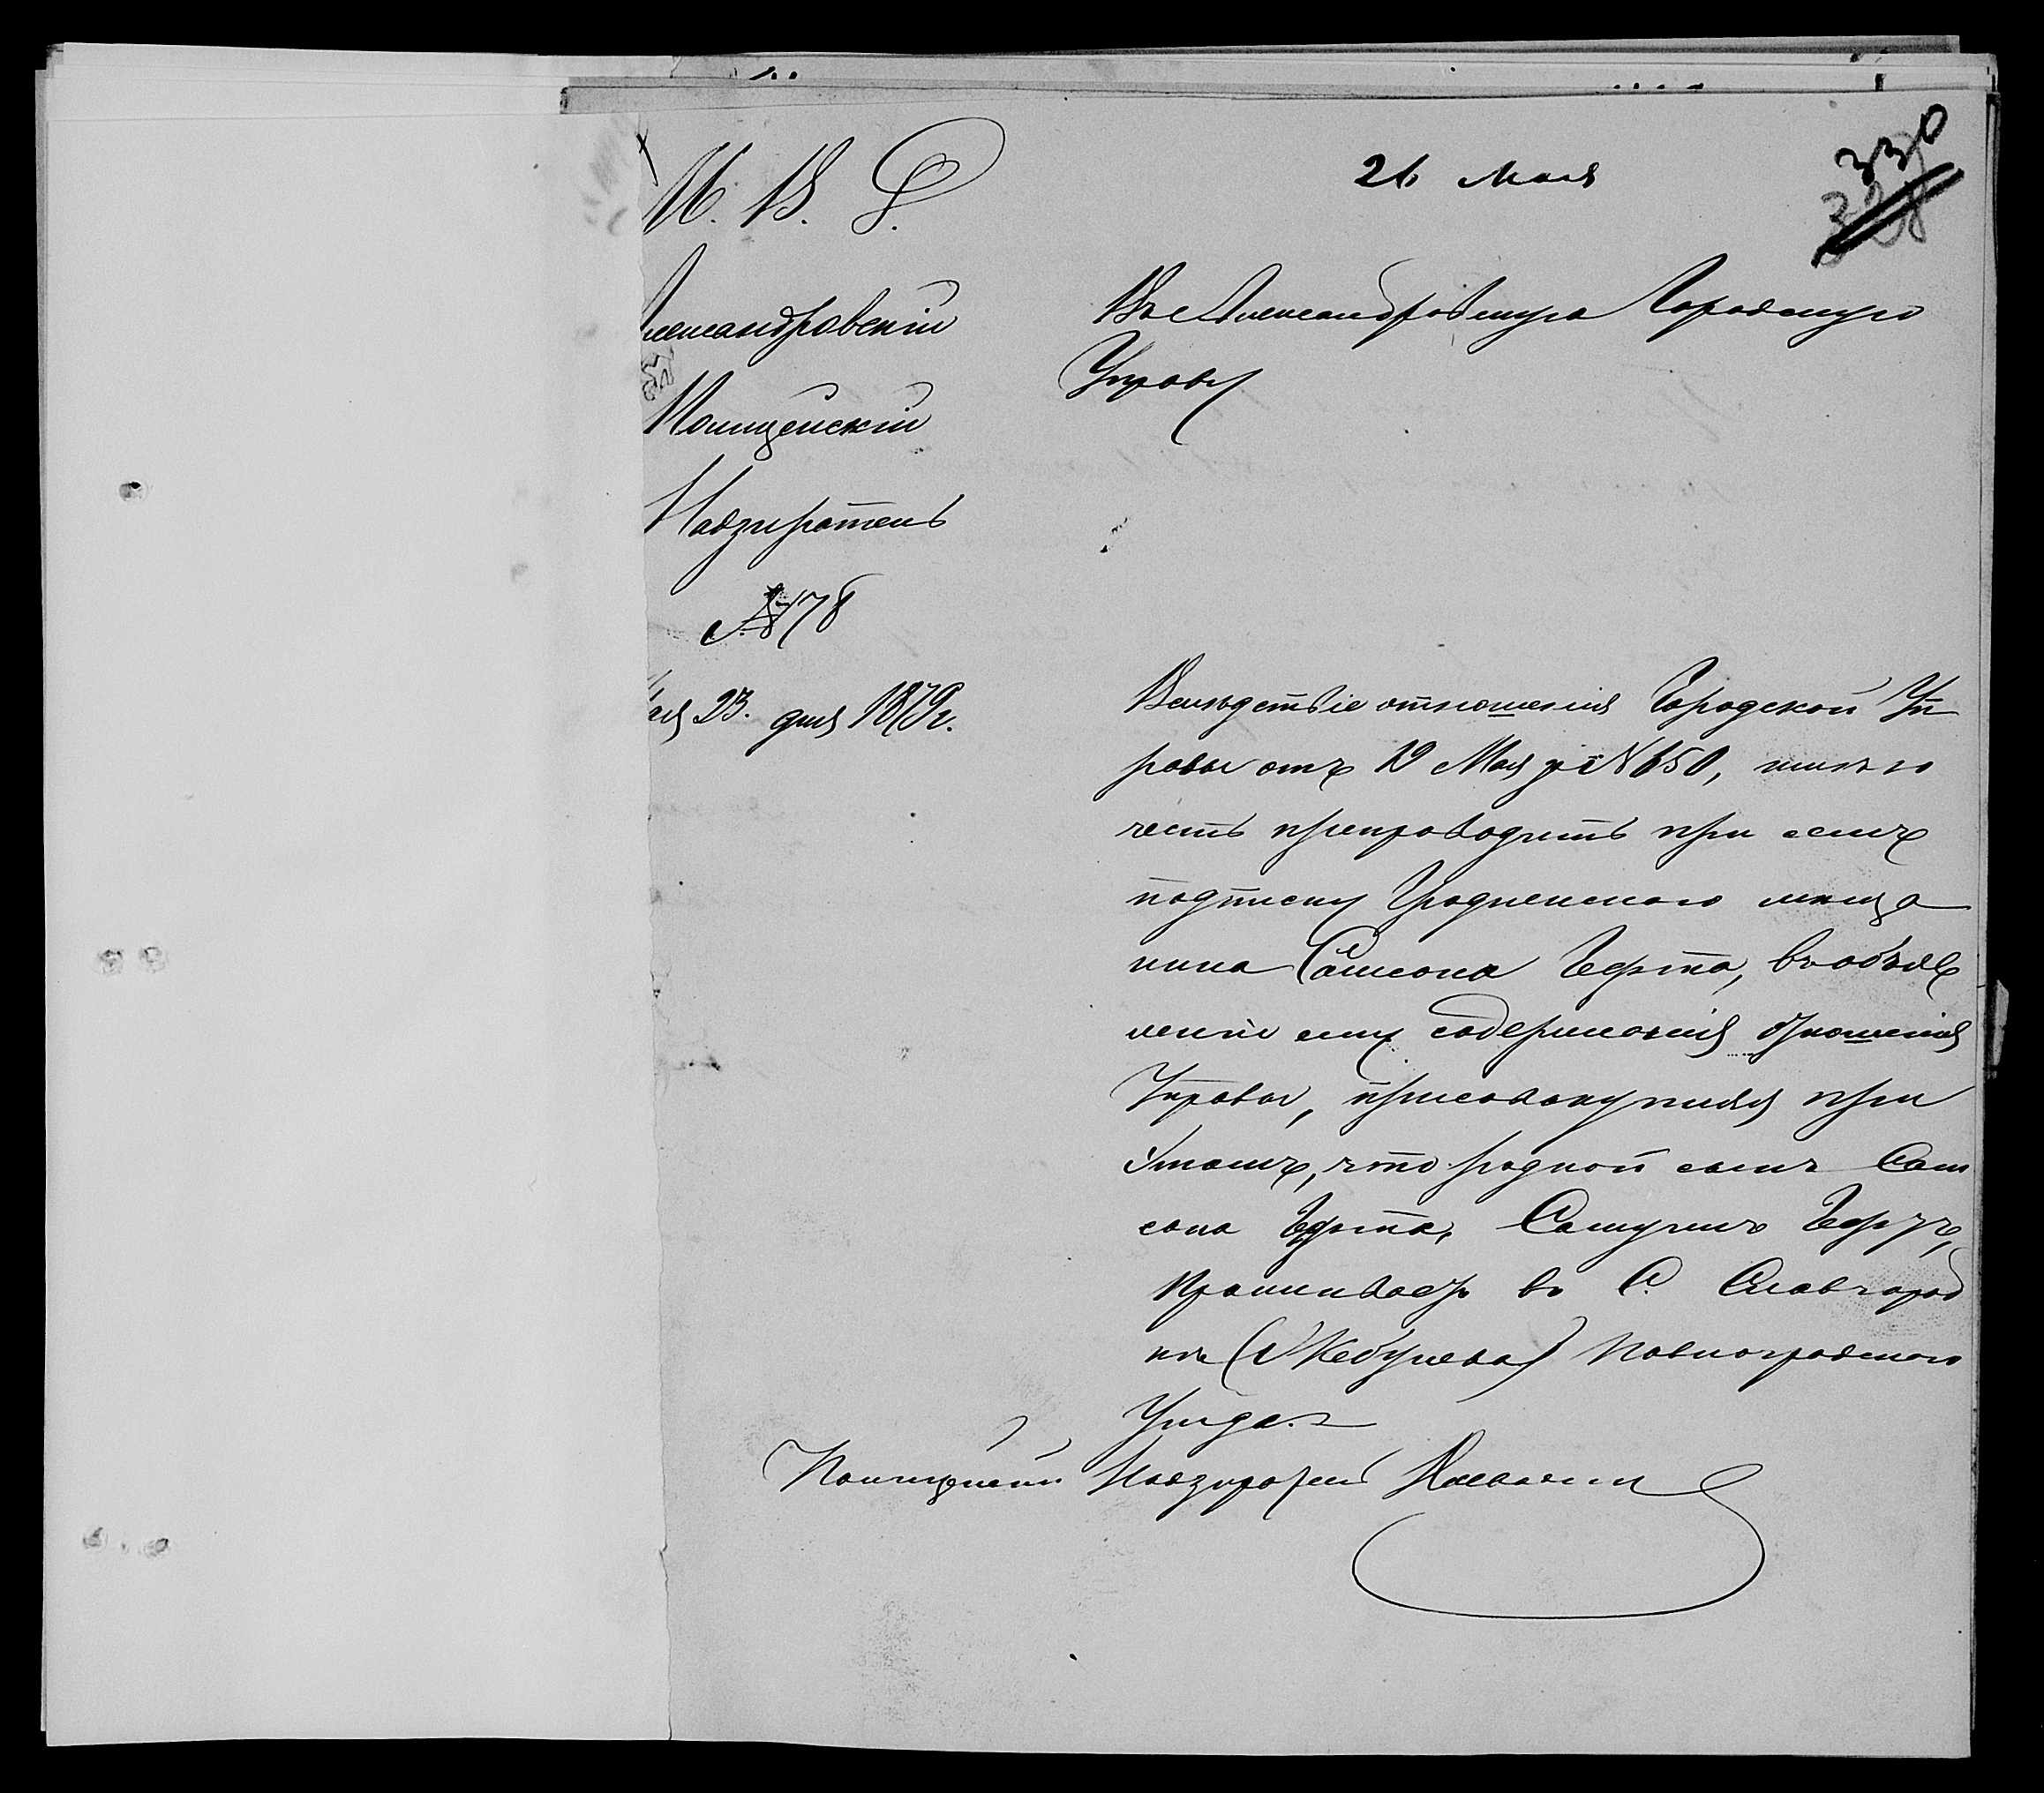 М. В. Д.
21 Мая
330
328
Александровскій
Полицейскій
Надзиратель
№ 78
Мая 23. дня 1879 г.
Въ Александровскую Городскую
Управу
Вслѣдствіе отношенія Городской Уп
равы отъ 19 Мая за № 650, имѣю
честь препроводить при семъ
подписку Гродненскаго мѣща
нина Самсона Герта, въ объяв
леніи ему содержанія отношенія
Управы, присовокупляя при
этомъ, что родной сынъ Сам
сона Герта, Самуилъ Гертъ,
проживаетъ въ С. Славгород
кѣ Павлоградскаго
Уѣзда.
Полицейскій Надзиратель